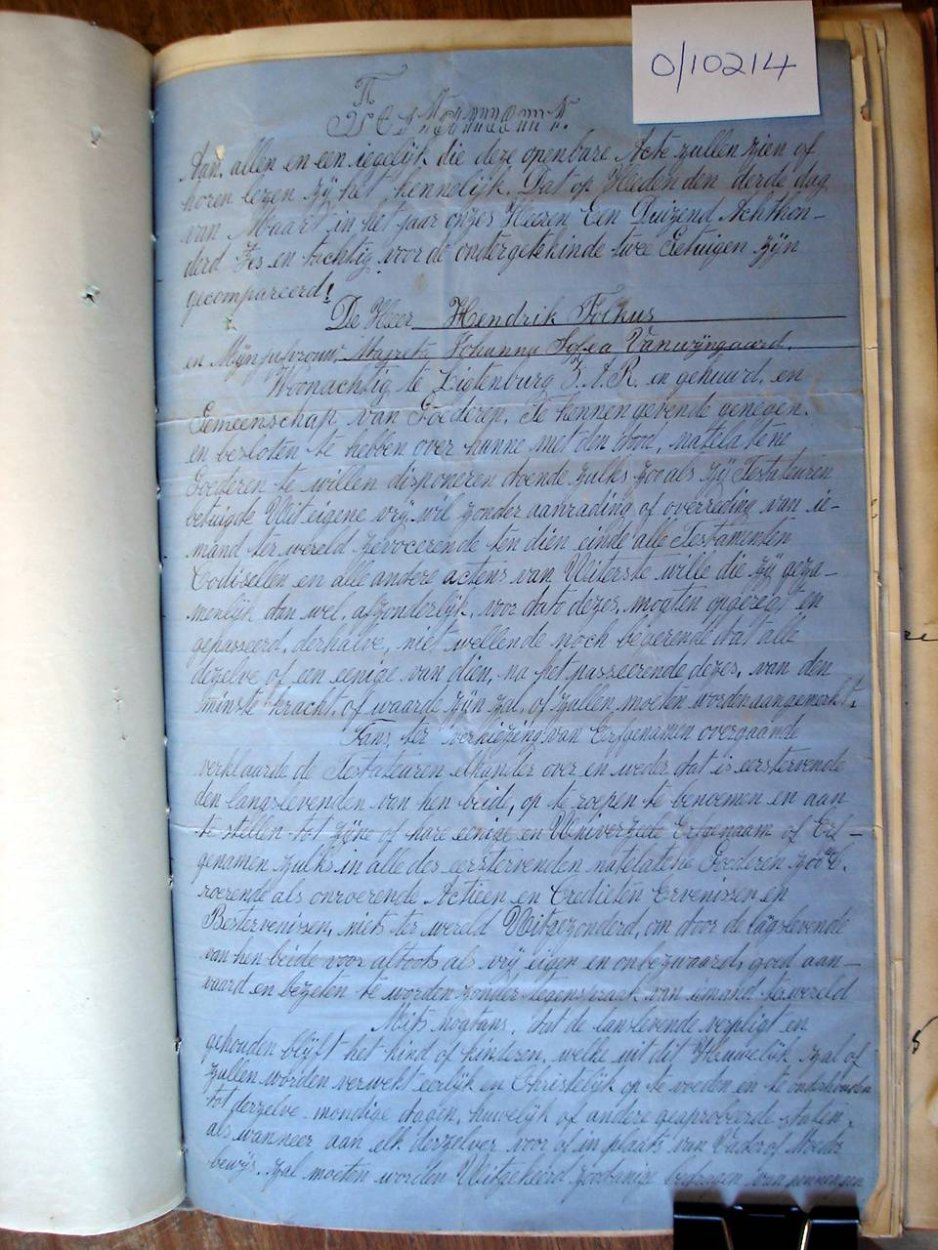 0/10214
Testament.
Aan allen en een iegelijk die deze openbare Acte zullen zien of
horen lezen zij het kennelijk. Dat op Heden den derde dag
van Maart in het jaar onzes Heeren Een Duizend Achthon-
derd Zes en tachtig voor de ondergetekende twee Getuigen zijn
gecompareerd!
De Heer Hendrik Fockus
en Mijnjufvrouw Magreta Johanna Sofea Vanwijngaard.
Woonachtig te Ligtenburg Z.A.R. en gehuud, en
Gemeenschap van Goederen, Te kennen gevende genegen.
en besloten te hebben over hunne met den dood, natelatene
Goederen te willen disponeren doende zulks zooals zij Testateuren
betuigde Uit eigene vrij wil zonder aanrading of overreding van ie-
mand ter wereld revocerende ten dien einde alle Testamenten
Codisellen en alle andere actens van Uiterste wille die zij geza-
menlijk dan wel, afzonderlijk, voor dato dezes, mogten opgeregt en
gepasseerd, derhalve, niet wellende noch begerende dat alle
dezelve of een eenige van dien, na het passeerende dezes, van den
minste kracht, of waarde zijn zal, of zullen moeten worden aangemerkt.
Tans, ter verkiezing van Erfgenamen overgaande
verklaarde de Testateuren elkander over en weder dat is eerstervende
den langslevenden van hen beide, op te roepen te benoemen en aan
te stellen tot zijne of hare eenige en Univerzele Erfgenaam of Erf-
genamen zulks in alle des eerstervenden natelatene Goederen zoo
roerende als onroerende Actieën en Credieten Ervenissen en
Bestervenissen, niets ter wereld Uitgezonderd, om door de langslevende
van hen beide voor altoos als vrij eigen en onbezwaard, goed aan-
vaard en bezeten te worden zonder tegenspraak van iemand ter wereld
Mits nogtans, dat de lanslevende verpligt en
gehouden blijft het kind of kinderen, welke uit dit Heuwelijk zal of
zullen worden verwekt eerlijk en Christelijk op te voeden en te onderhouden
tot derzelve mondige dagen, huwelijk of andere geaprobeerde staten
als wanneer aan elk derzelver voor of in plaats van Vader of Moeders
bewijs. zal moeten worden Uitgekeerd zoodanige van penningen
5